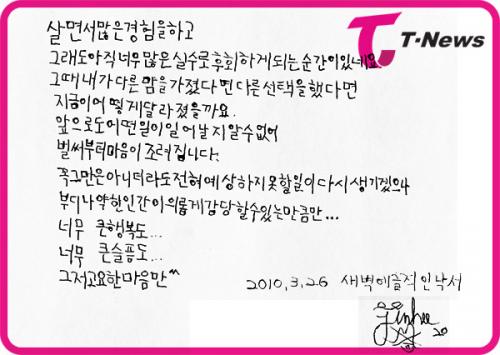 T-News
살면서 많은 경험을 하고
그래도 아직 너무 많은 실수롯 후회하게 되는 순간이 있네요.
그때 내가 다른 맘을 가졌다면 다른 선택을 했다면
지금이 어떻게 달라졌을까요.
앞으로도 어떤 일이 일어날지 알 수 없어
벌써부터 마음이 조려집니다.
꼭 그만은 아니더라도 전혀 예상하지 못할 일이 다시 생기겠으나
부디 나약한 인간이 이롭게 감당할 수 있는 만큼만...
너무 큰 행복도...
너무 큰 슬픔도...
그저 고요한 마음만^^
2010.3.26 새벽에 끌적인 낙서
Jinhee 20